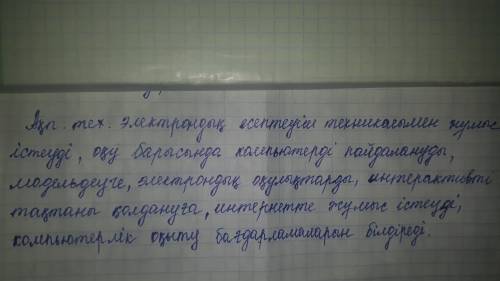 Ақп. тех. электрондық есептеуіш техникасымен жұмыс
істеуді, оқу барысында компьютерді пайдалануды,
модельдеуге, электрондық оқулықтарды, интерактивті
тақтаны қолдануға, интернетте жұмыс істеуді,
компьютерлік оқыту бағдарламаларын білдіреді.